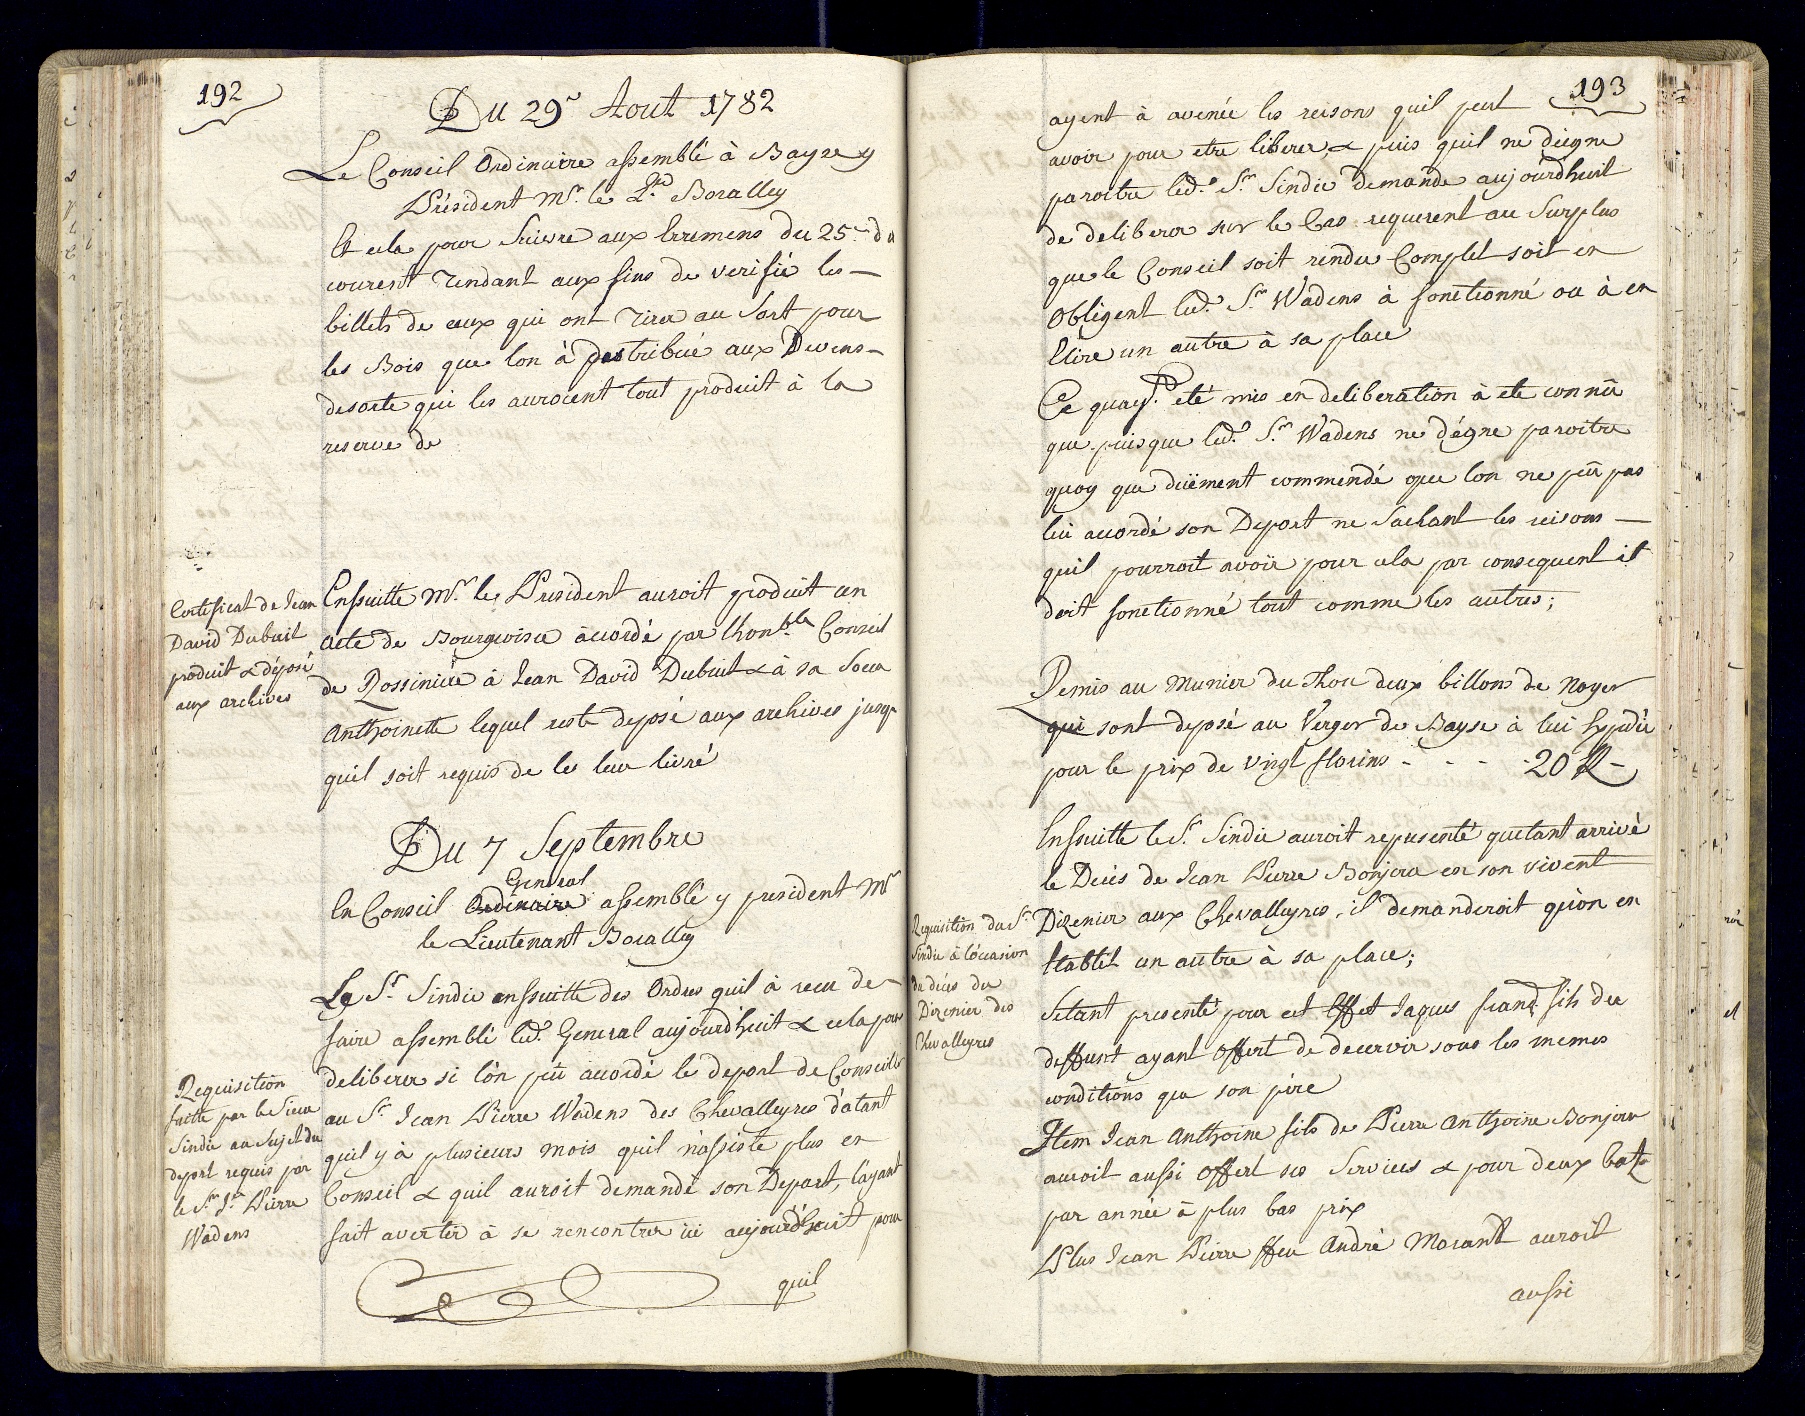 192
Du 29e Aout 1782
Le Conseil Ordinaire assemblé à Bayse y
Président Mr. le Lt. Boralley
Et cela pour Suivre aux Erremens du 25e du
courent Tendant aux fins de verifié les
billets de ceux qui ont Tirer au Sort pour
les Bois que lon à distribué aux Devens
desorte qui les auroient tout produit à la
reserve de
Certificat de Jean
David Dubuit
produit & déposé
aux archives
Ensuitte Mr. le Président auroit produit un
acte de Bourgeoisie àccordé par lhonble. Conseil
de Rossiniére à Jean David Dubuit & à sa Soeur
Anthoinette lequel reste deposé aux archives jusqu
quil soit requis de les leur livré
Du 7 Septembre
En Conseil Ordinaire General assemblé y president Mr
le Lieutenant Boralley
Requisition
faitte par le Sieur
Sindic au Sujet du
deport requis par
le Sr. Jn. Pierre
Wadens
Le Sr. Sindic ensuitte des Ordres quil à recu de
faire assemblé led. General aujourd'huit & cela pour
deliberer si lòn peu accordé le deport de Conseiller
au Sr. Jean Pierre Wadens des Chevalleyres d'atant
quil y à plusieurs mois quil n'assiste plus en
Conseil & quil auroit demandé son Deport, l'ayant
fait avertir à se rencontrer ici aujourd'huit pour
quil
193
ayent à avenée les reisons quil peut
avoir pour etre liberer, & puis quil ne deigne
paroitre led. Sr. Sindic demande aujourdhuit
de deliberer sur le Cas requerent au Surplus
que le Conseil soit rendu Complet soit en
Obligent led. Sr. Wadens à fonctionné ou à en
Elire un autre à sa place
Ce quay. eté mis en deliberation à ete connû
que puisque led. Sr. Wadens ne dégne paroitre
quoy que düement commendé que lon ne peû pas
lui accordé son Deport ne Sachant les reisons
quil pourroit avoir pour cela par consequent il
doit fonctionné tout comme les autres;
Remis au Munier du Thou deux billons de Noyer
qui sont deposé au Verger de Bayse à lui Expedié
pour le prix de vingt florins - - - 20 fl -
Requisition du Sr.
Sindic à lóccasion
du décés du
Dizenier des
Chevalleyres
Ensuitte le Sr. Sindic auroit representé quetant arrivé
le Décés de Jean Pierre Bonjour en son vivent
Dizenier aux Chevalleyres, il demanderoit qu'on en
Etablit un autre à sa place;
Setant presenté pour cet Effet Jaques Frand. fils du
deffunt ayant offert de decervir sous les memes
conditions que son pére
Item Jean Anthoine fils de Pierre Anthoine Bonjour
auroit aussi offert ses Services & pour deux batz
par année à plus bas prix
Plus Jean Pierre ffeu André Morant auroit
aussi